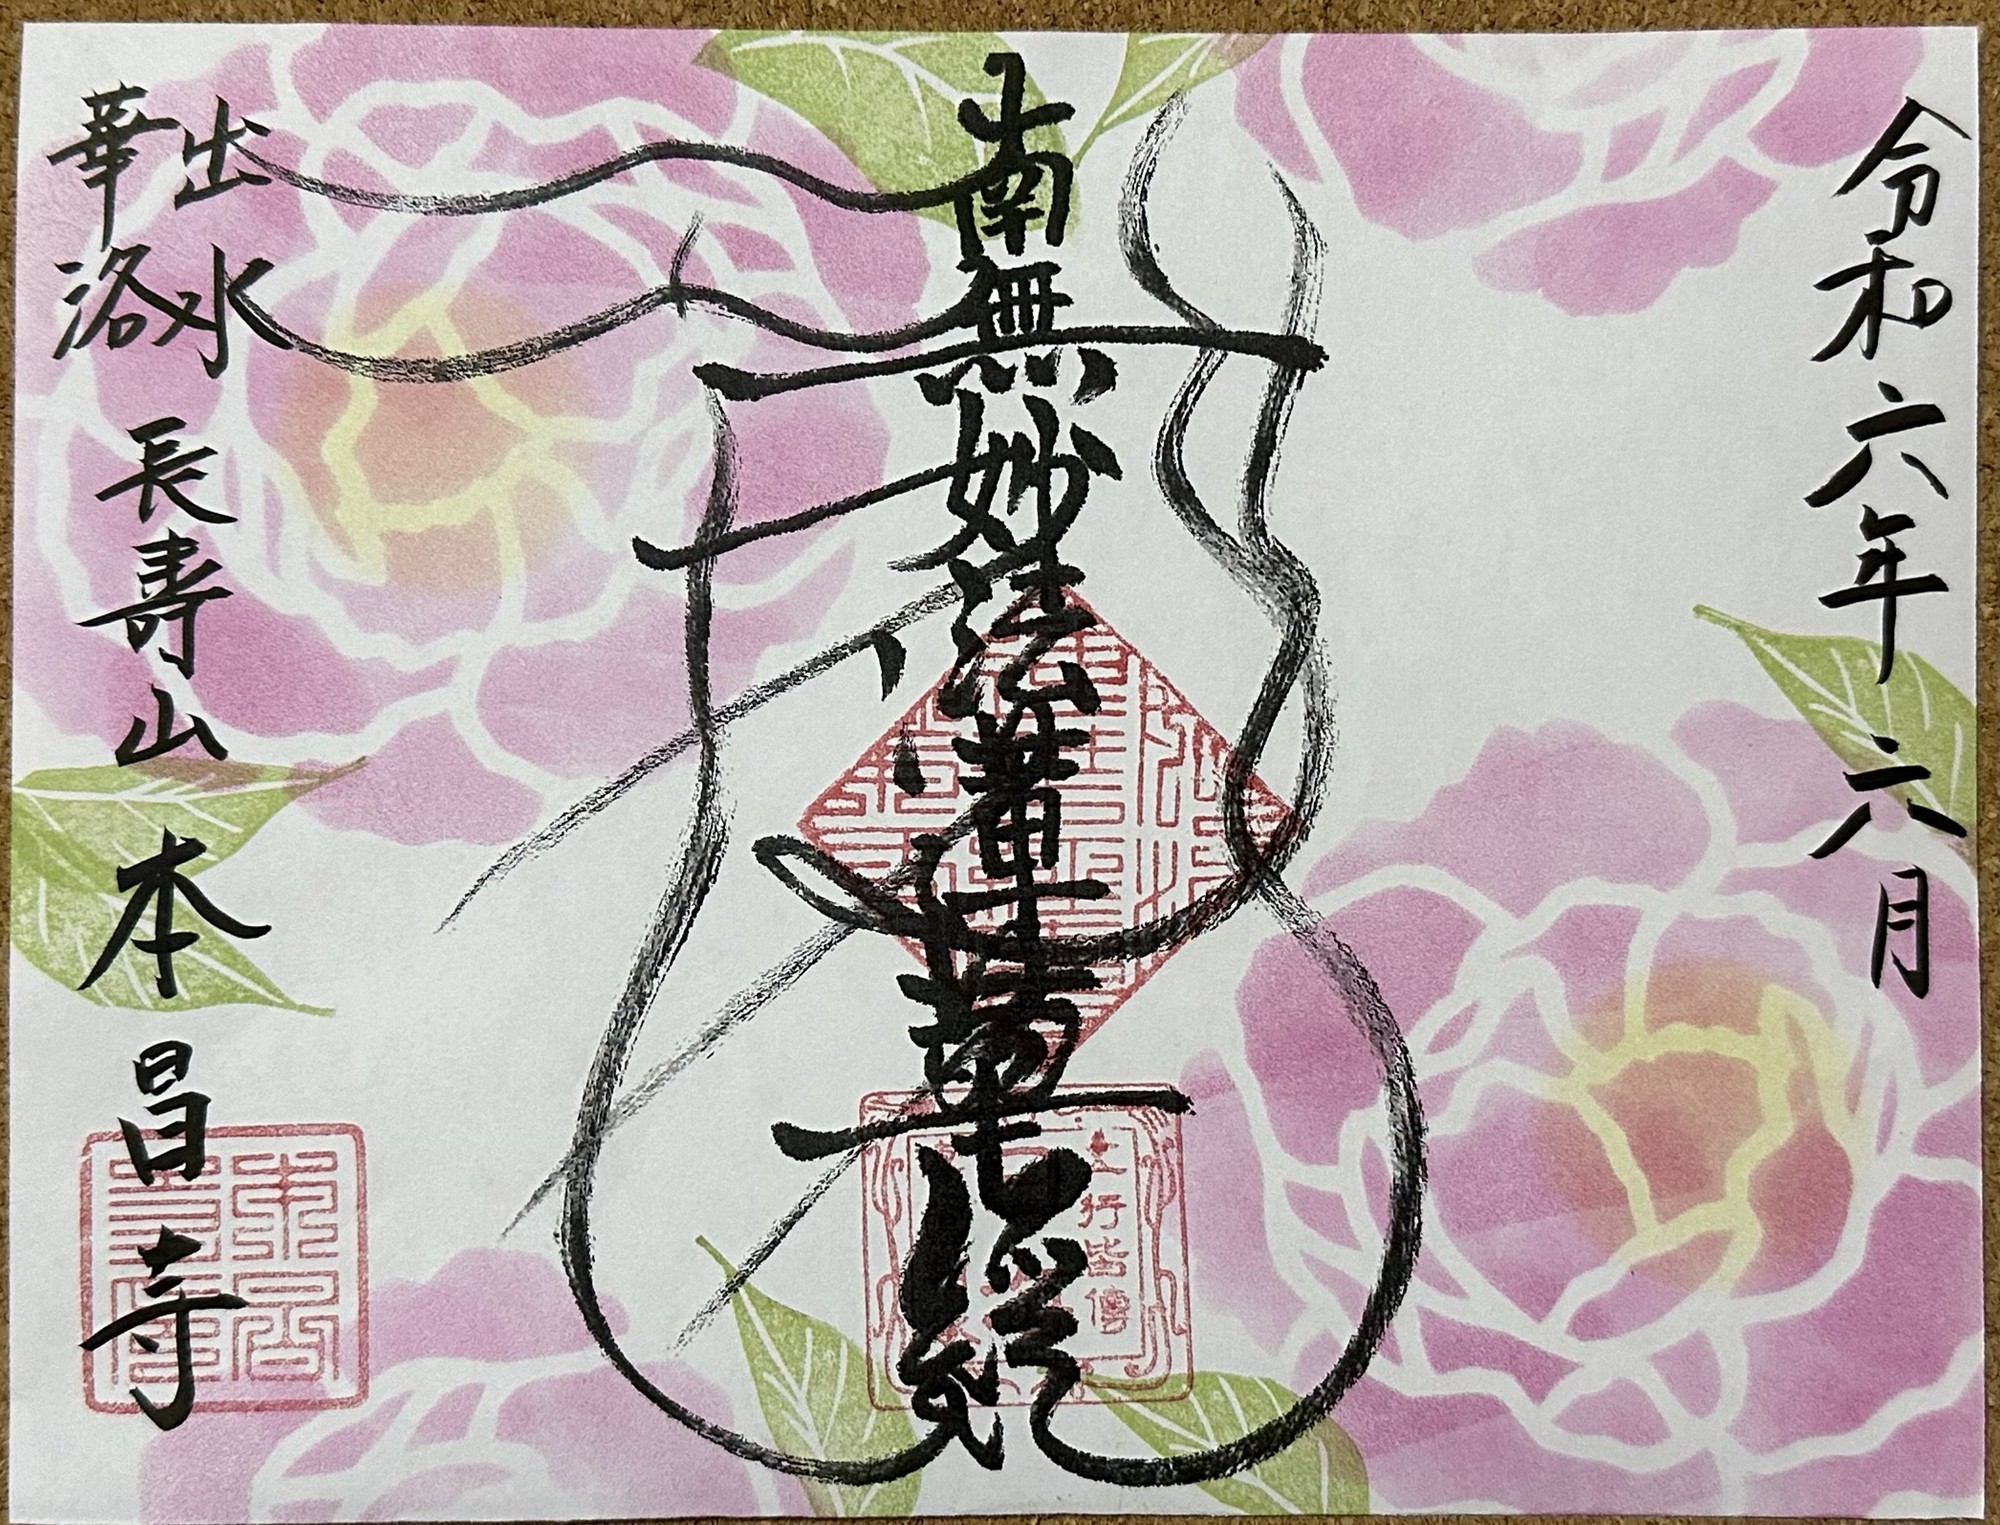 令和六年六月
南無妙法蓮華経
出水
華洛
長壽山
本昌寺
上行皆傳